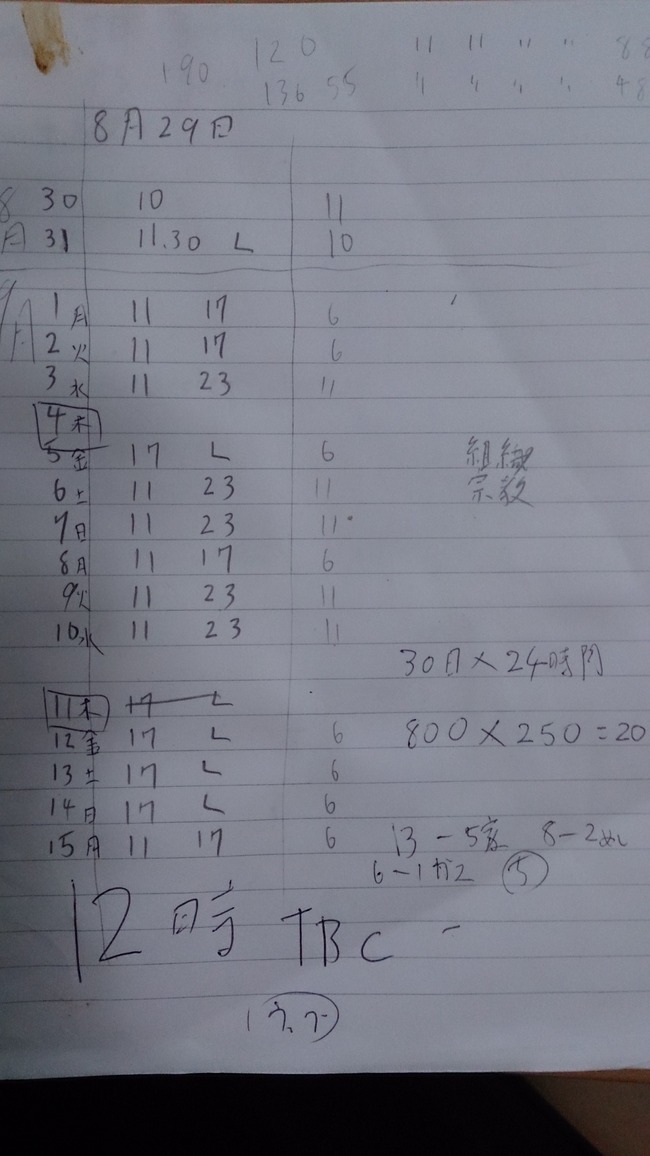 120 11 11 〃 〃 88
190 136 55 〃 〃 〃 〃 48
8月29日
8 30 10 11
月 31 11.30 L 10
9月 1月 11 17 6
2火 11 17 6
3水 11 23 11
4木
5金 17 L 6 組織
6土 11 23 11 宗教
7日 11 23 11
8月 11 17 6
9火 11 23 11
10水 11 23 11
30日×24時間
11木 17 L
12金 17 L 6 800×250=20
13土 17 L 6
14日 17 L 6
15月 11 17 6 13-5 8-2
6-1 5
12時 TBC